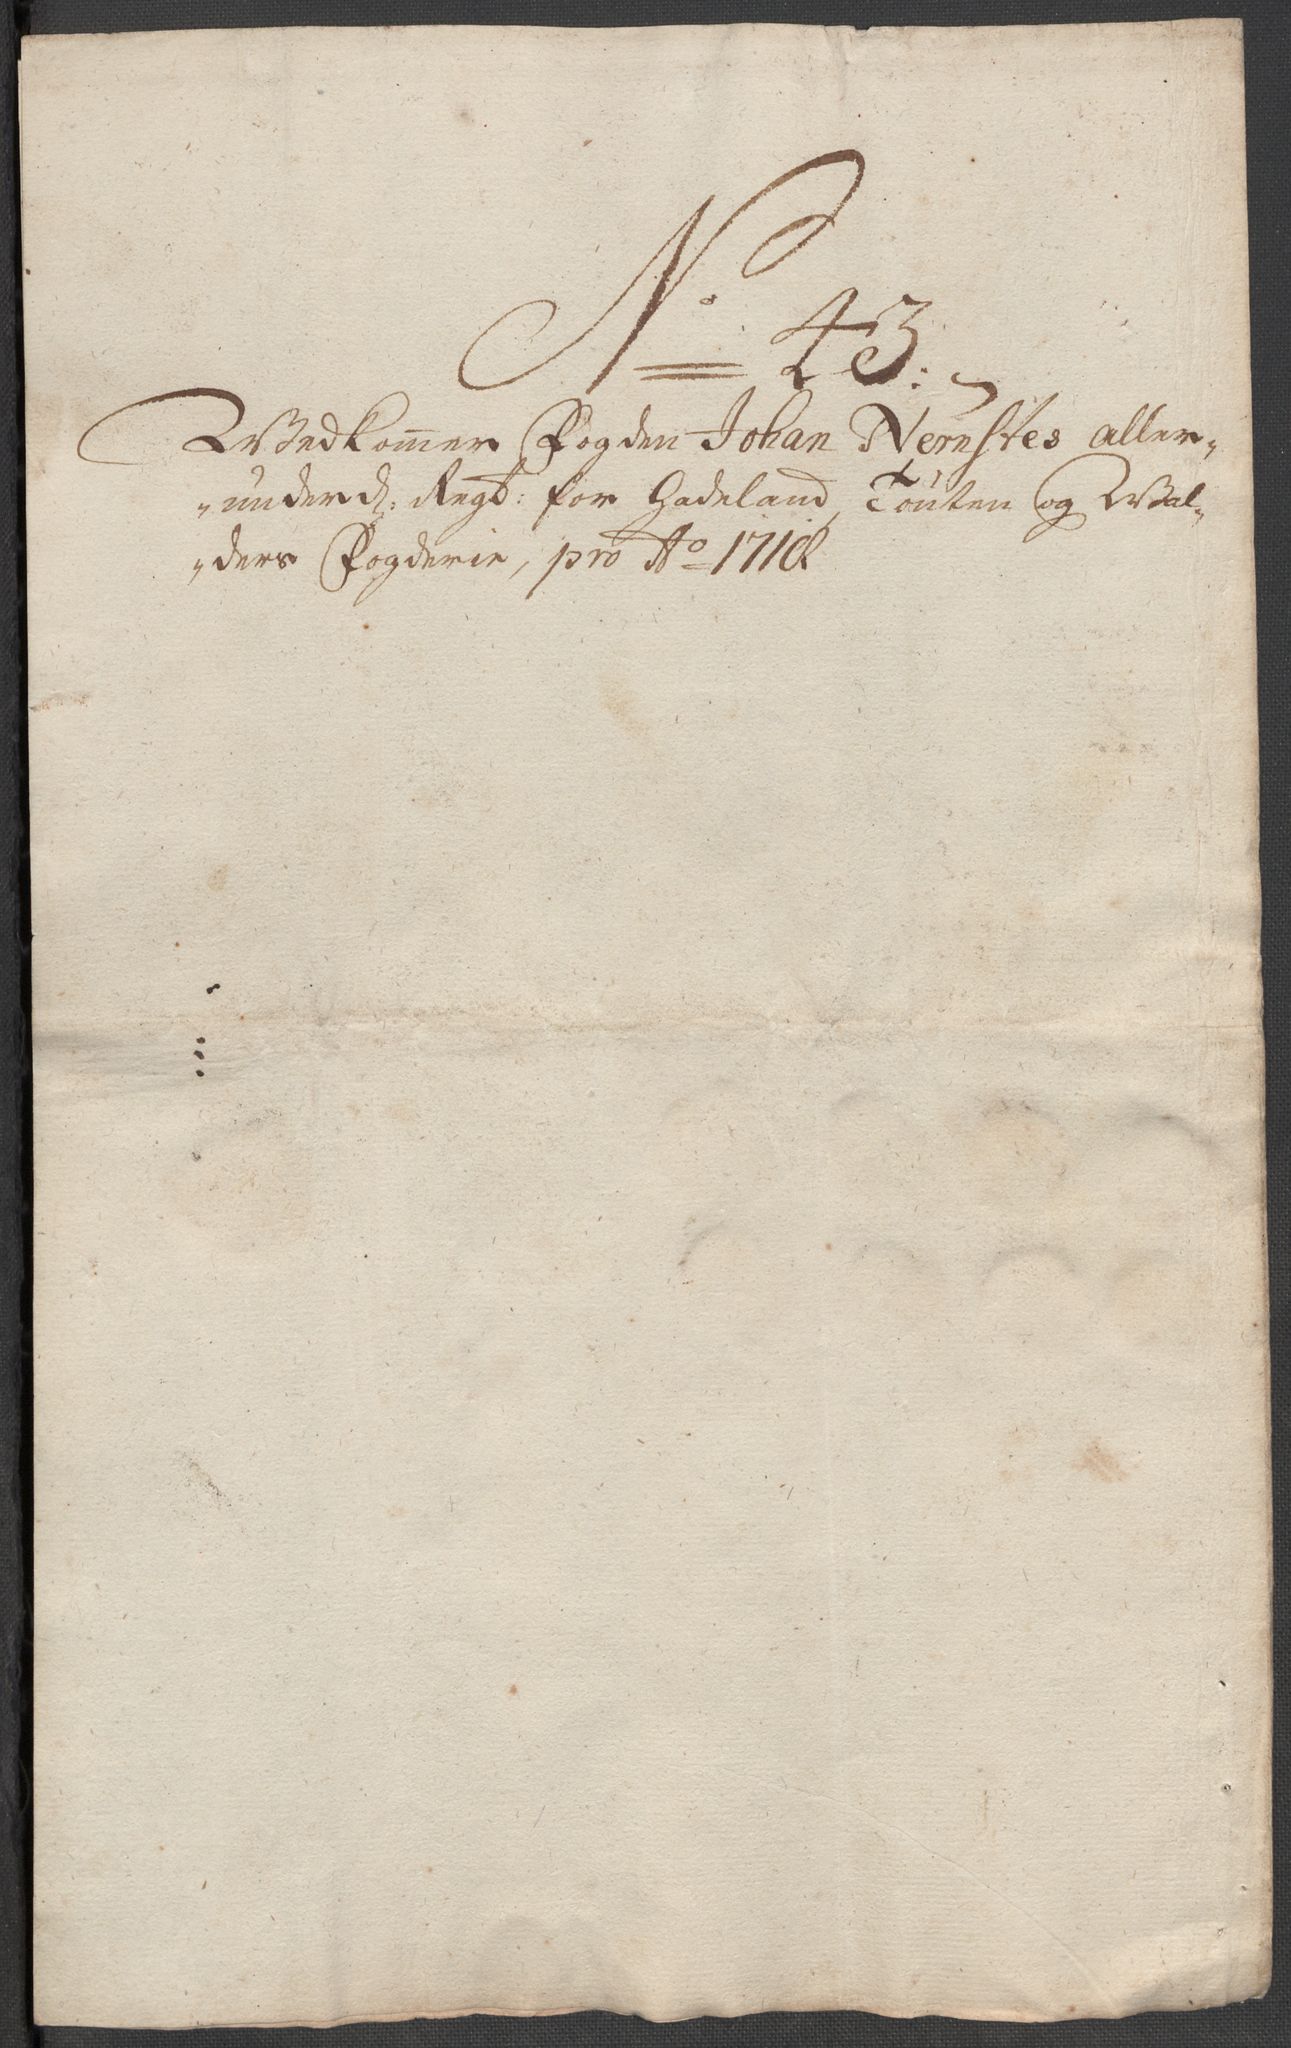 No 43.
Wedkommer Fogden Johan Nernstes aller-
underd: Regsk: for Hadeland, Touten og Wal-
ders Fogderie, pro Ao 1710